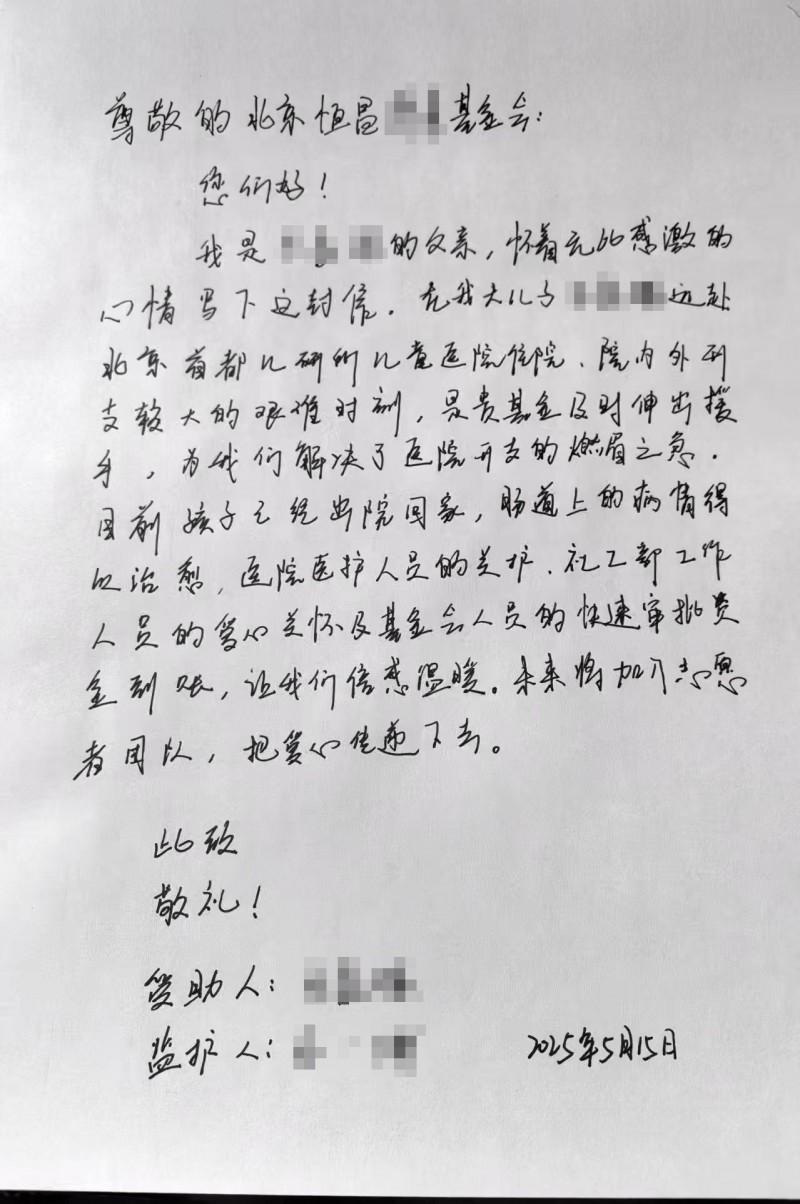 尊敬的北京恒昌基金会：
您们好！
我是的父亲，怀着无比感激的
心情写下这封信。在我大儿子远赴
北京首都儿研所儿童医院住院、院内外开
支较大的艰难时刻，是贵基金及时伸出援
手，为我们解决了医院开支的燃眉之急。
目前孩子已经出院回家，肠道上的病情得
以治愈，医院医护人员的关护、社工部工作
人员的爱心关怀及基金会人员的快速审批资
金到账，让我们倍感温暖。未来将加入志愿
者团队，把爱心传递下去。
此致
敬礼！
受助人：
监护人：
2025年5月15日